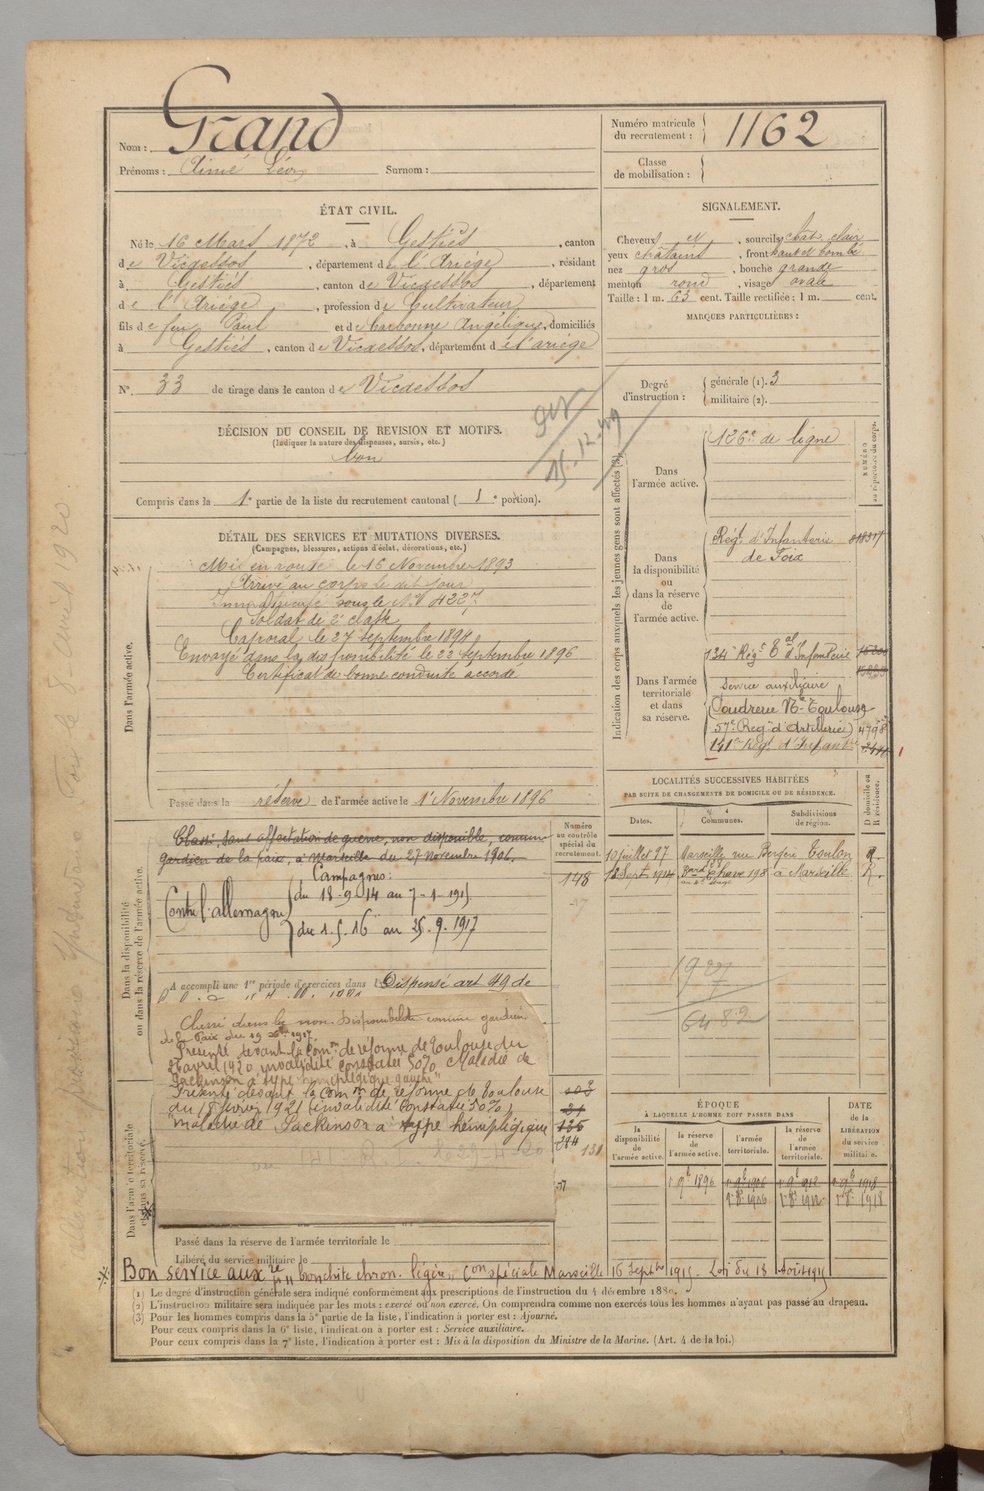 Nom : Grand
Prénoms : Aimé Léon Surnom :
Numéro matricule du recrutement : 1162
Classe de mobilisation :
ÉTAT CIVIL.
Né le 16 Mars 1872, à Gestiès, canton
de Vicdessos, département de l'Ariège, résidant
à Gestiès, canton de Vicdessos, département
de l'Ariège, profession de Cultivateur
fils de feu Paul et de Carbonne Angélique, domiciliés
à Gestiès, canton de Vicdessos, département de l'ariège
N°. 33 de tirage dans le canton de Vicdessos
SIGNALEMENT.
Cheveux et, sourcils chât. clair
yeux châtains, front haut et bombé
nez gros, bouche grande
menton rond, visage ovale
Taille : 1 m. 63 cent. Taille rectifiée : 1 m. cent.
MARQUES PARTICULIÈRES :
Degré d'instruction : générale (1). 3
militaire (2).
DÉCISION DU CONSEIL DE REVISION ET MOTIFS.
(Indiquer la nature des dispenses, sursis, etc.)
bon
15-12-19
Compris dans la 1e partie de la liste du recrutement cantonal ( 1e portion).
DÉTAIL DES SERVICES ET MUTATIONS DIVERSES.
(Campagnes, blessures, actions d'éclat, décorations, etc.)
Dans l'armée active.
Mis en route le 16 Novembre 1893
Arrivé au corps le dit jour
Immatriculé sous le N° 4227
Soldat de 2e classe
Caporal le 27 septembre 1894
Envoyé dans la disponibilité le 22 septembre 1896
Certificat de bonne conduite accordé
Passé dans la réserve de l'armée active le 1er Novembre 1896
Indication des corps auxquels les jeunes gens sont affectés (3)
NUMÉRO au répertoire du corps.
Dans l'armée active.
126e de ligne
Dans la disponibilité ou dans la réserve de l'armée active.
Régt d'Infanterie
de Foix
Dans l'armée territoriale et dans sa réserve.
134e Régt Tal d'Infanterie
Service auxiliaire
Poudrerie Nle Toulouse
57e Regt d'Artillerie 4798
141e Régt d'Infantie
LOCALITÉS SUCCESSIVES HABITÉES
PAR SUITE DE CHANGEMENTS DE DOMICILE OU DE RÉSIDENCE.
Dates. Communes. Subdivisions de région. D domicile ou R résidence.
10 juillet 97 Marseille rue Bergère Toulon R.
18 Sept. 1914 Bard Chave 198 à Marseille R.
1927
6482
Dans la disponibilité ou dans la réserve de l'armée active.
Numéro au contrôle spécial du recrutement.
148
Classé, sans affectation de guerre, non disponible, comme
gardien de la paix, à Marseille du 27 Novembre 1901.
Campagnes :
Contre l'allemagne
du 18-9-14 au 7-1-1915
du 1.5.16 au 25.9.1917
A accompli une 1re période d'exercices dans l Dispensé art 49 de
Classé dans la non-disponibilité comme gardien
de la Paix du 19 1917.
Présenté devant la Comon de réforme de Toulouse du
26 avril 1920 invalidité constatée 50% Maladie de
Packinson à type hémiplégique gauche"
Présenté devant la Comon de réforme de Toulouse
du 18 février 1921 (invalidité constatée 50%)
"maladie de Packinson à type hémiplégique
Dans l'armée territoriale et dans sa réserve.
131
ÉPOQUE
À LAQUELLE L'HOMME DOIT PASSER DANS
la disponibilité de l'armée active. la réserve de l'armée active. l'armée territoriale. la réserve de l'armée territoriale.
DATE de la LIBÉRATION du service militaire.
1er 9bre 1896 1er 9bre 1906 1er 9bre 1912 1er 9bre 1918
1er 8bre 1906 1er 8bre 1912 1er 8bre 1918
Passé dans la réserve de l'armée territoriale le
Libéré du service militaire le
Bon service auxre pr "bronchite chron. légère" Con spéciale Marseille 16 Septbre 1915. Loi du 18 août 1915
(1) Le degré d'instruction générale sera indiqué conformément aux prescriptions de l'instruction du 4 décembre 1889.
(2) L'instruction militaire sera indiquée par les mots : exercé ou non exercé. On comprendra comme non exercés tous les hommes n'ayant pas passé au drapeau.
(3) Pour les hommes compris dans la 5e partie de la liste, l'indication à porter est : Ajourné.
Pour ceux compris dans la 6e liste, l'indication à porter est : Service auxiliaire.
Pour ceux compris dans la 7e liste, l'indication à porter est : Mis à la disposition du Ministre de la Marine. (Art. 4 de la loi.)